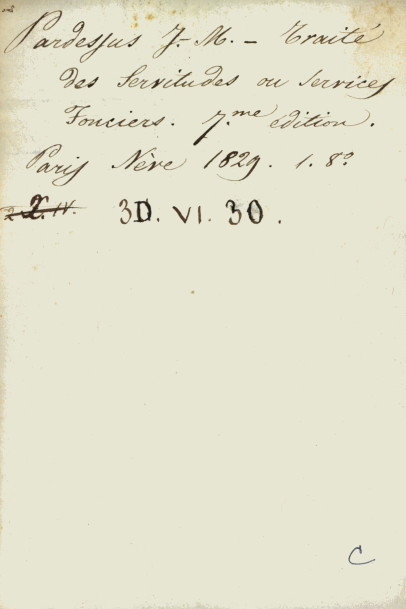 Pardessus J.-M. – Traité
des Servitudes ou Services
Fonciers. 7.me édition.
Paris Nève 1829. 1. 8º
3D. VI. 30.
C